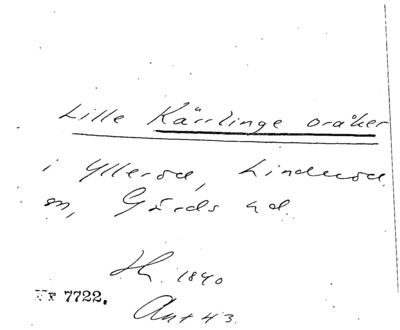 Lille Kärrlinge oråker
i Ylleröd, Linderöd
sn, Gärds hd.
Sk. 1840
Nr 7722.
Akt 43.